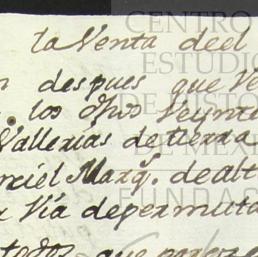 la Venta deel
despues que Ve
los dhos Veynte
Vallerias de tierra
Marq. de alt
Via depermuta
todos que
CENTRO
ESTUDIO
DE HISTO
DE MEXI
FUNDAC